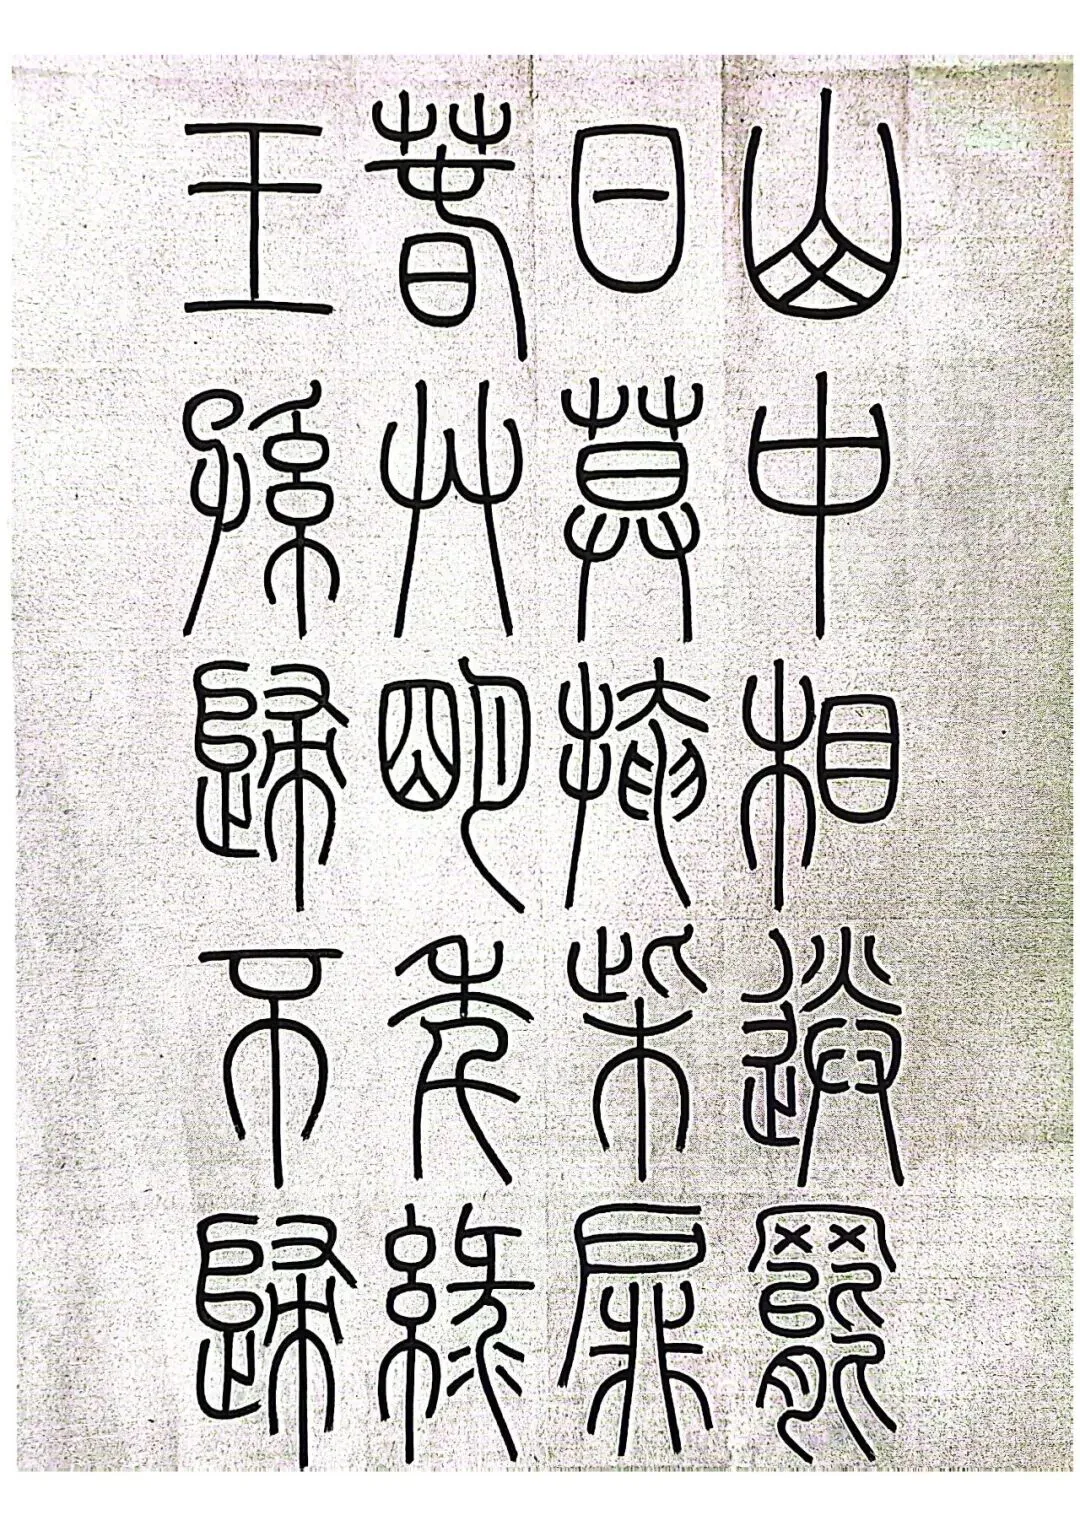 山中相送罷
日莫掩柴扉
春草明年綠
王孫歸不歸